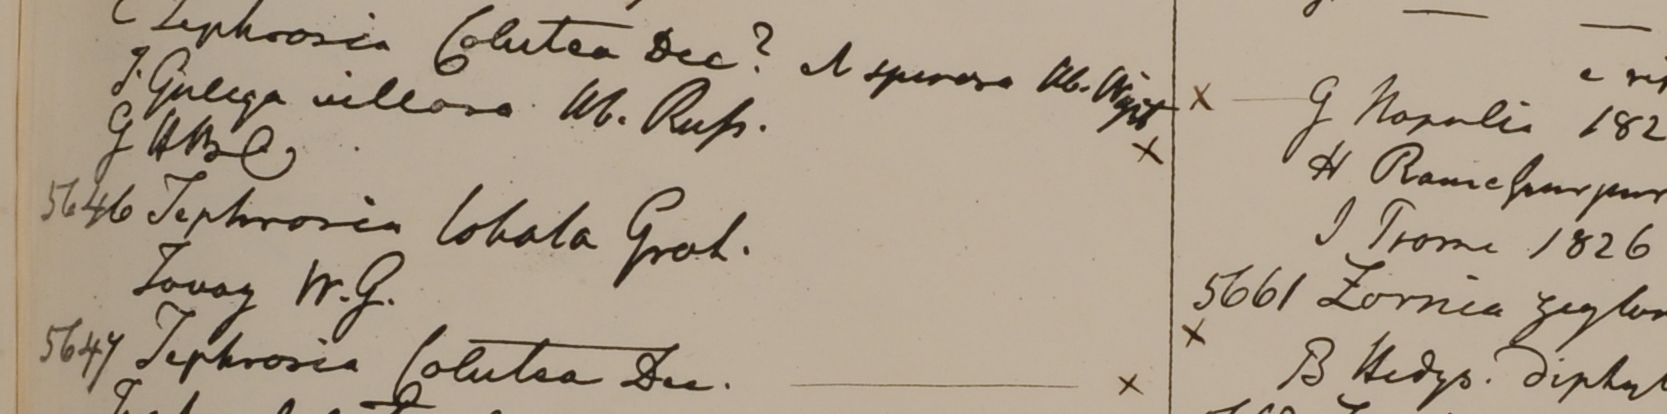 Tephrosia Colutea Dec? A spinosa Hb. Wight
F. Galega villosa Hb. Russ.
G HBC
5646 Tephrosia lobata Grah.
Tavoy W.G.
5647 Tephrosia Colutea Dec.
G Napalia 182
H
I Prome 1826
5661 Zornia zeylon
B Hedys. diphyl